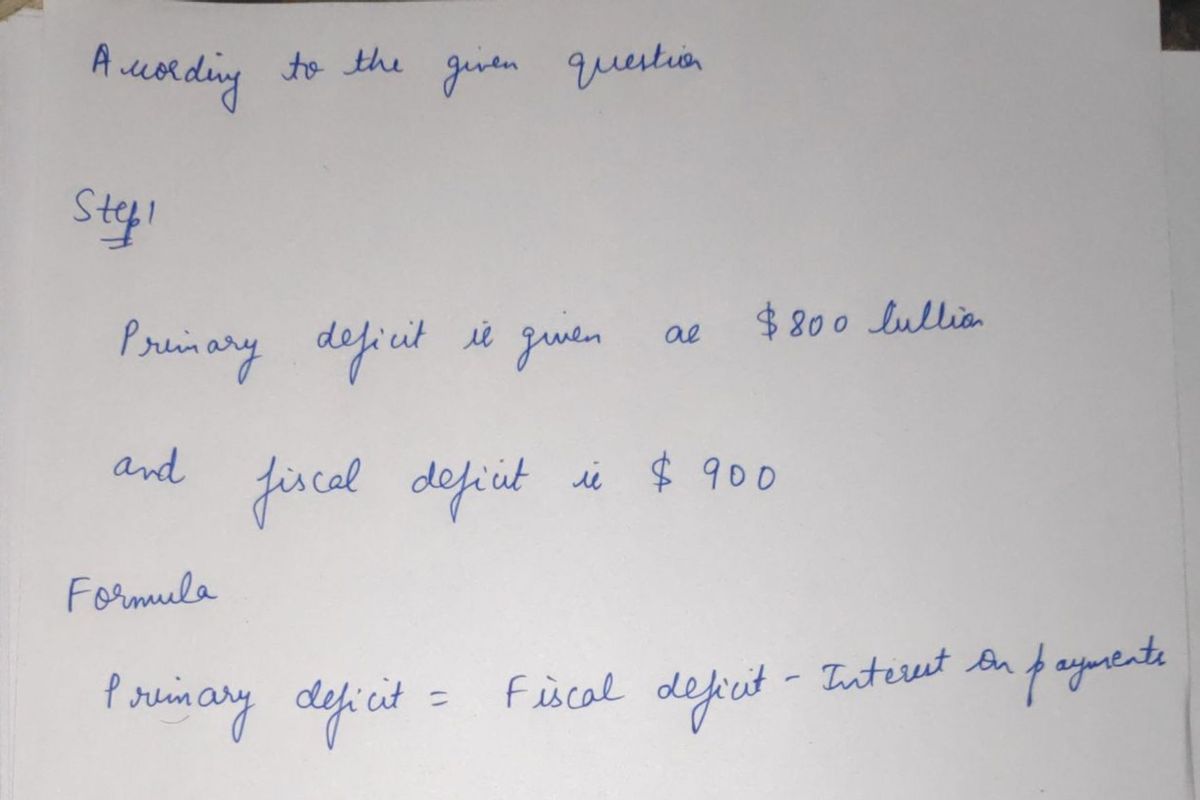 According to the given question
Step1
Primary deficit is given as $800 billion
and fiscal deficit is $ 900
Formula
Primary deficit = Fiscal deficit - Interest on payments